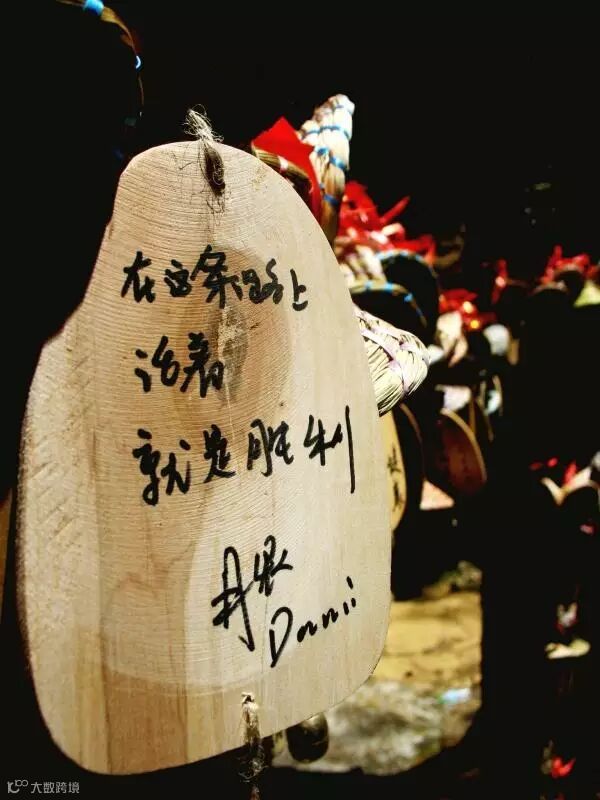 在这条路上
活着
就是胜利
丹泥
Dannii
大数跨境